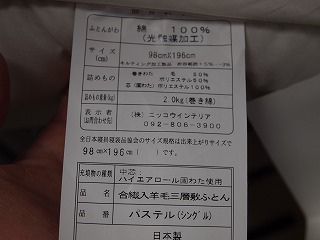 ふとんがわ 綿 100%
(光触媒加工)
サイズ
(cm) 98cm×196cm
キルティング加工製品 許容範囲+5%--3%
詰めもの 巻きわた 毛 50%
ポリエステル50%
芯(固わた) ポリエステル100%
詰めもの重量(kg) 2.0kg(巻き綿)
表示者
(お問合わせ先) (株)ニッコウインテリア
092-806-3900
全日本寝具寝装品協会のサイズ規格は出来上がりサイズで
98cm×196cm( )です。
充填物の種類 中芯
ハイエアロール固わた使用
品名 合繊入羊毛三層敷ふとん
品番 パステル(シングル)
日本製